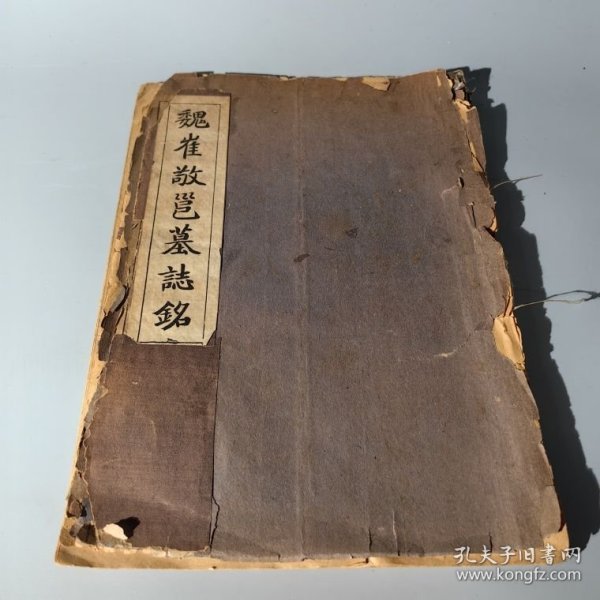 魏崔敬邕墓誌銘
孔夫子旧书网
www.kongfz.com